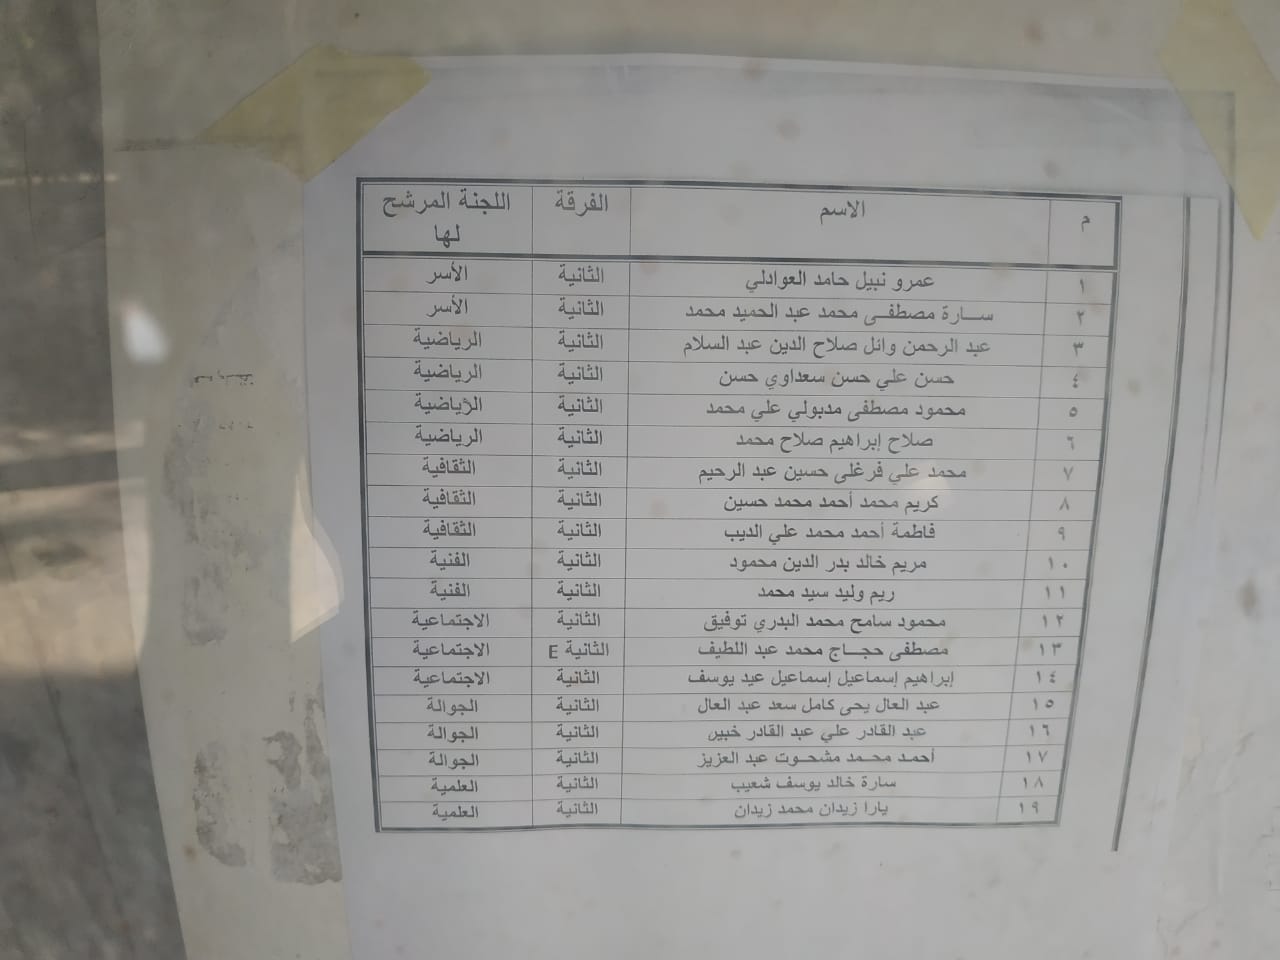 م الاسم الفرقة اللجنة المرشح لها
١ عمرو نبيل حامد العوادلي الثانية الأسر
٢ ســارة مصطفــى محمد عبد الحميد محمد الثانية الأسر
٣ عبد الرحمن وائل صلاح الدين عبد السلام الثانية الرياضية
٤ حسن علي حسن سعداوي حسن الثانية الرياضية
٥ محمود مصطفى مدبولي علي محمد الثانية الرياضية
٦ صلاح إبراهيم صلاح محمد الثانية الرياضية
٧ محمد علي فرغلى حسين عبد الرحيم الثانية الثقافية
٨ كريم محمد أحمد محمد حسين الثانية الثقافية
٩ فاطمة أحمد محمد علي الديب الثانية الثقافية
١٠ مريم خالد بدر الدين محمود الثانية الفنية
١١ ريم وليد سيد محمد الثانية الفنية
١٢ محمود سامح محمد البدري توفيق الثانية الاجتماعية
١٣ مصطفى حجــاج محمد عبد اللطيف الثانية E الاجتماعية
١٤ إبراهيم إسماعيل إسماعيل عيد يوسف الثانية الاجتماعية
١٥ عبد العال يحى كامل سعد عبد العال الثانية الجوالة
١٦ عبد القادر علي عبد القادر خبير الثانية الجوالة
١٧ أحمد محـمد مشحــوت عبد العزيز الثانية الجوالة
١٨ سارة خالد يوسف شعيب الثانية العلمية
١٩ يارا زيدان محمد زيدان الثانية العلمية